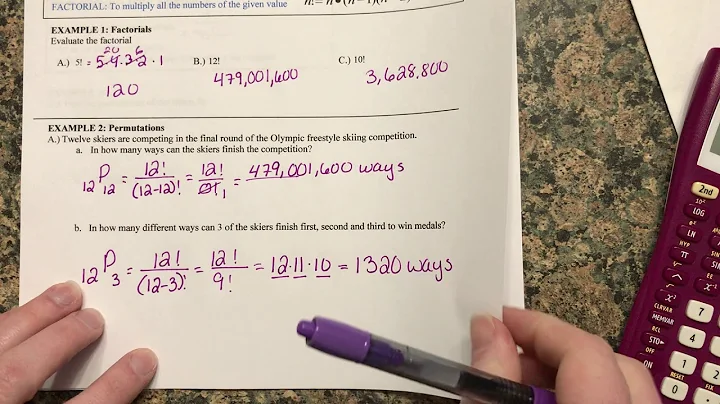 FACTORIAL: To multiply all the numbers of the given value
EXAMPLE 1: Factorials
Evaluate the factorial
20 6
A.) 5! = 5·4·3·2·1 B.) 12! C.) 10!
120 479,001,600 3,628,800
EXAMPLE 2: Permutations
A.) Twelve skiers are competing in the final round of the Olympic freestyle skiing competition.
a. In how many ways can the skiers finish the competition?
12P12 = 12!/(12-12)! = 12!/0! 1 = 479,001,600 ways
b. In how many different ways can 3 of the skiers finish first, second and third to win medals?
12P3 = 12!/(12-3)! = 12!/9! = 12·11·10 = 1320 ways
2nd
LOG
LN
HYP
π
SIN
^
x²
CLRVAR
MEMVAR
7
RCL
STO▸
4
OFF
ON
1
RESET
0